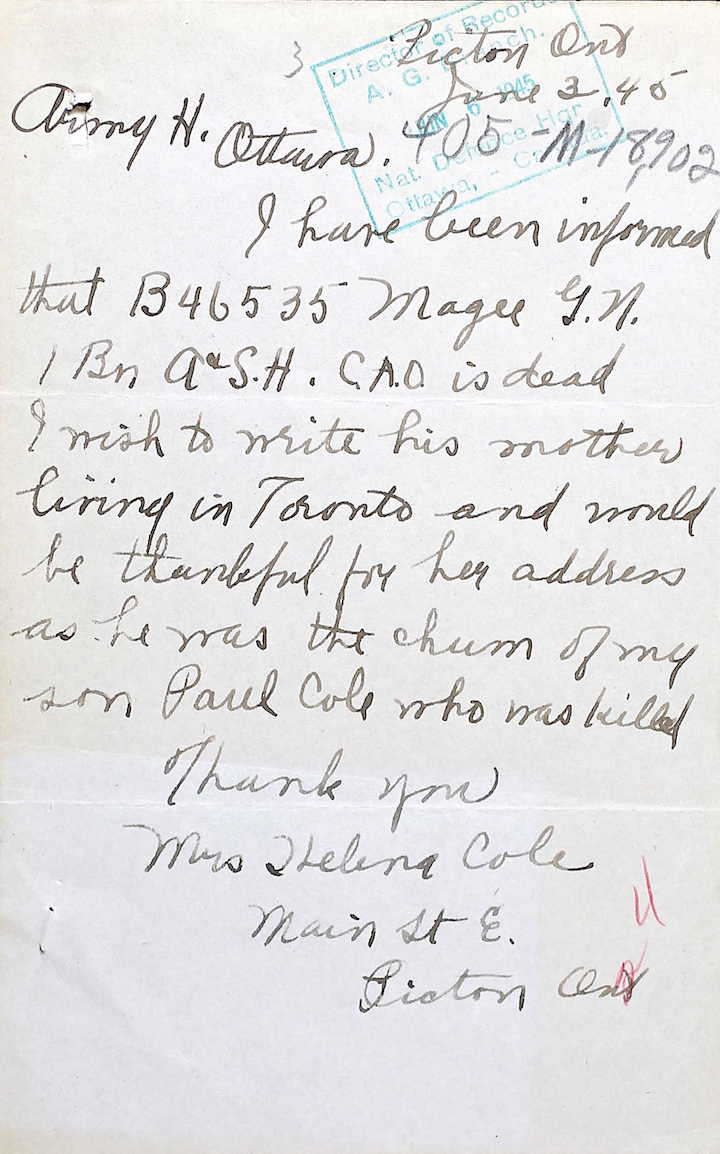 3
Picton Ont
June 2. 45
Director of Records
A. G. Branch.
JUN 6 1945
Nat. Defence Hqr
Ottawa, - Canada.
Army H. Ottawa. 405-M-18,902
I have been informed
that B46535 Magee G.N.
1 Bn A&S.H. C.A.O. is dead
I wish to write his mother
living in Toronto and would
be thankful for her address
as he was the chum of my
son Paul Cole who was killed
Thank you
Mrs Helena Cole
Main St E.
Picton Ont